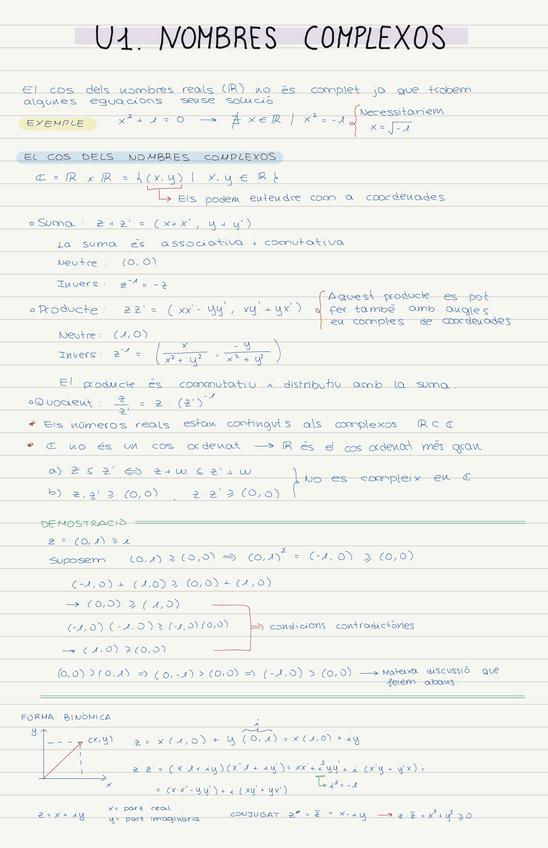 U1. NOMBRES COMPLEXOS
El cos dels nombres reals (ℝ) no és complet ja que trobem
algunes equacions sense solució.
EXEMPLE: x² + 1 = 0 → ∄ x ∈ ℝ | x² = -1 { Necessitariem
x = √-1
EL COS DELS NOMBRES COMPLEXOS
ℂ = ℝ x ℝ = { (x, y) | x, y ∈ ℝ }
↳ Els podem entendre com a coordenades
Suma: z + z' = (x + x', y + y')
La suma és associativa i conmutativa
Neutre: (0, 0)
Invers: z⁻¹ = -z
Producte: zz' = (xx' - yy', xy' + yx') { Aquest producte es pot
fer també amb angles
en comptes de coordenades
Neutre: (1, 0)
Invers: z⁻¹ = ( x / x² + y² , -y / x² + y² )
El producte és conmutatiu i distributiu amb la suma.
Quocient: z / z' = z · (z')⁻¹
Els números reals estan continguts als complexos ℝ ⊂ ℂ
ℂ no és un cos ordenat → ℝ és el cos ordenat més gran
a) z ≤ z' ⟺ z + w ≤ z' + w
b) z, z' ≥ (0, 0) , z · z' ≥ (0, 0) } No es compleix en ℂ
DEMOSTRACIÓ
z = (0, 1) ≡ i
Suposem (0, 1) ≥ (0, 0) ⟹ (0, 1)² = (-1, 0) ≥ (0, 0)
(-1, 0) + (1, 0) ≥ (0, 0) + (1, 0)
→ (0, 0) ≥ (1, 0)
(-1, 0) (-1, 0) ≥ (-1, 0) (0, 0) ⟹ condicions contradictòries
→ (1, 0) ≥ (0, 0)
(0, 0) > (0, 1) ⟹ (0, -1) > (0, 0) ⟹ (-1, 0) > (0, 0) → Mateixa discussió que
feiem abans.
FORMA BINÒMICA
y
(x, y)
x
i
z = x (1, 0) + y (0, 1) = x (1, 0) + iy
z z' = (x · 1 + iy) (x' 1 + iy') = xx' + i² yy' + i (x'y + y'x) =
↳ i² = -1
= (x·x' - yy') + i (xy' + yx')
z = x + iy
x = part real
y = part imaginària
CONJUGAT: z* = z̄ = x - iy → z · z̄ = x² + y² ≥ 0